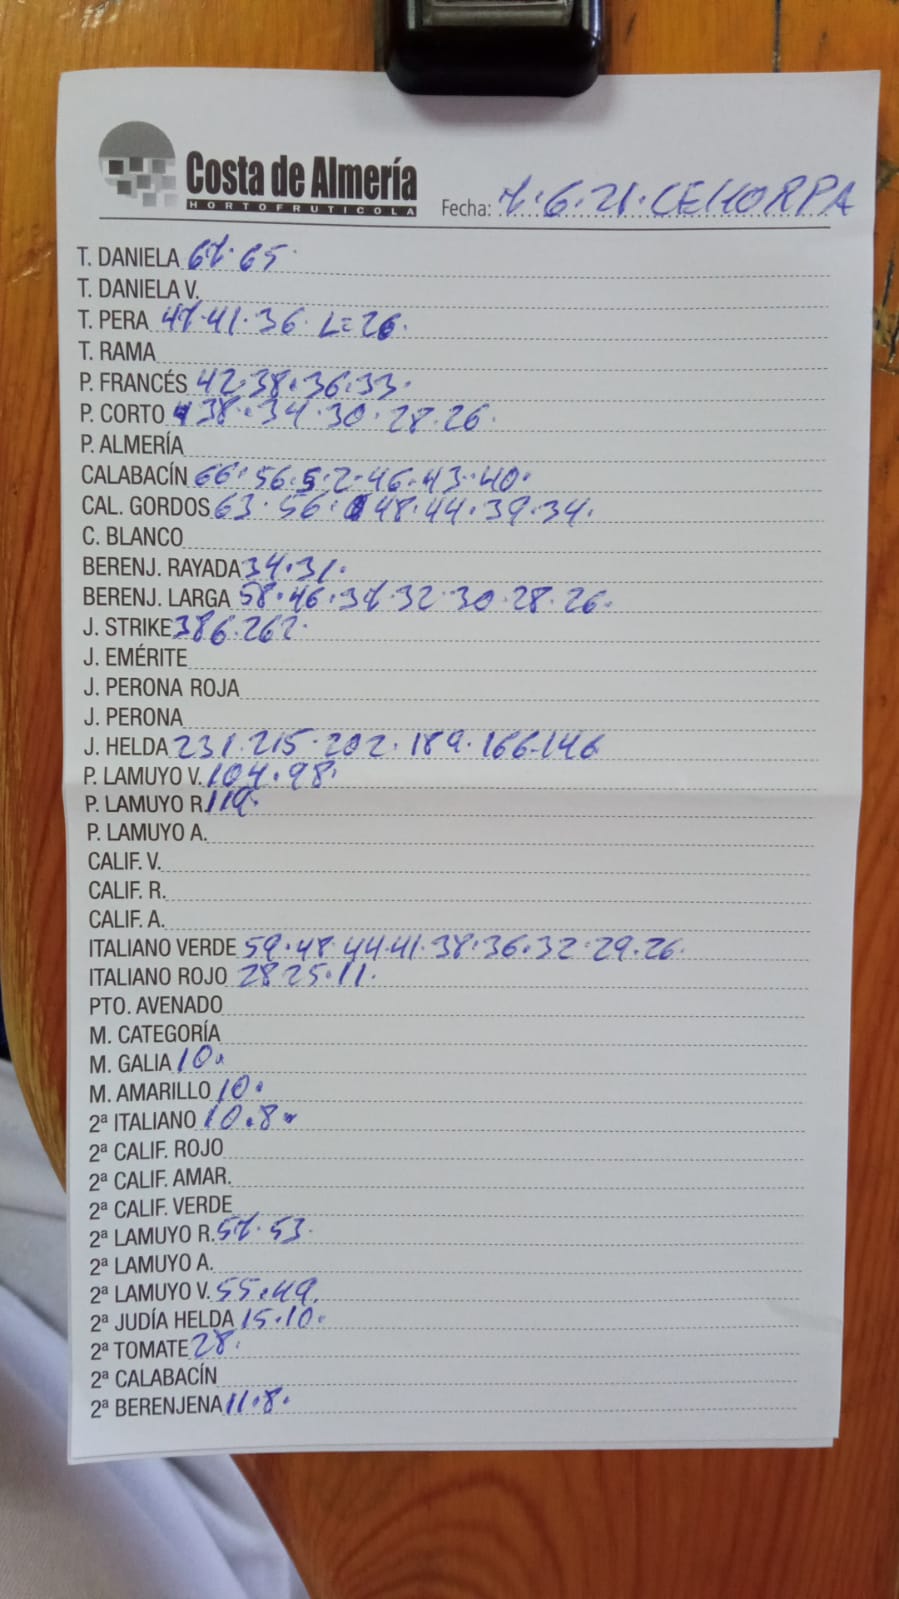 Costa de Almería
HORTOFRUTICOLA
Fecha: 7.6.21.CEHORPA
T. DANIELA 67.65.
T. DANIELA V.
T. PERA 47.41.36. L=26.
T. RAMA
P. FRANCÉS 42.38.36.33.
P. CORTO 38.34.30.28.26.
P. ALMERÍA
CALABACÍN 66.56.52.46.43.40.
CAL. GORDOS 63.56.48.44.39.34.
C. BLANCO
BERENJ. RAYADA 34.31.
BERENJ. LARGA 58.46.37.32.30.28.26.
J. STRIKE 386.262.
J. EMÉRITE
J. PERONA ROJA
J. PERONA
J. HELDA 231.215.202.189.166.146
P. LAMUYO V. 104.98.
P. LAMUYO R. 119.
P. LAMUYO A.
CALIF. V.
CALIF. R.
CALIF. A.
ITALIANO VERDE 59.48.44.41.38.36.32.29.26.
ITALIANO ROJO 28 25.11.
PTO. AVENADO
M. CATEGORÍA
M. GALIA 10.
M. AMARILLO 10.
2ª ITALIANO 10.8.
2ª CALIF. ROJO
2ª CALIF. AMAR.
2ª CALIF. VERDE
2ª LAMUYO R. 57.53.
2ª LAMUYO A.
2ª LAMUYO V. 55.49.
2ª JUDÍA HELDA 15.10.
2ª TOMATE 28.
2ª CALABACÍN
2ª BERENJENA 11.8.